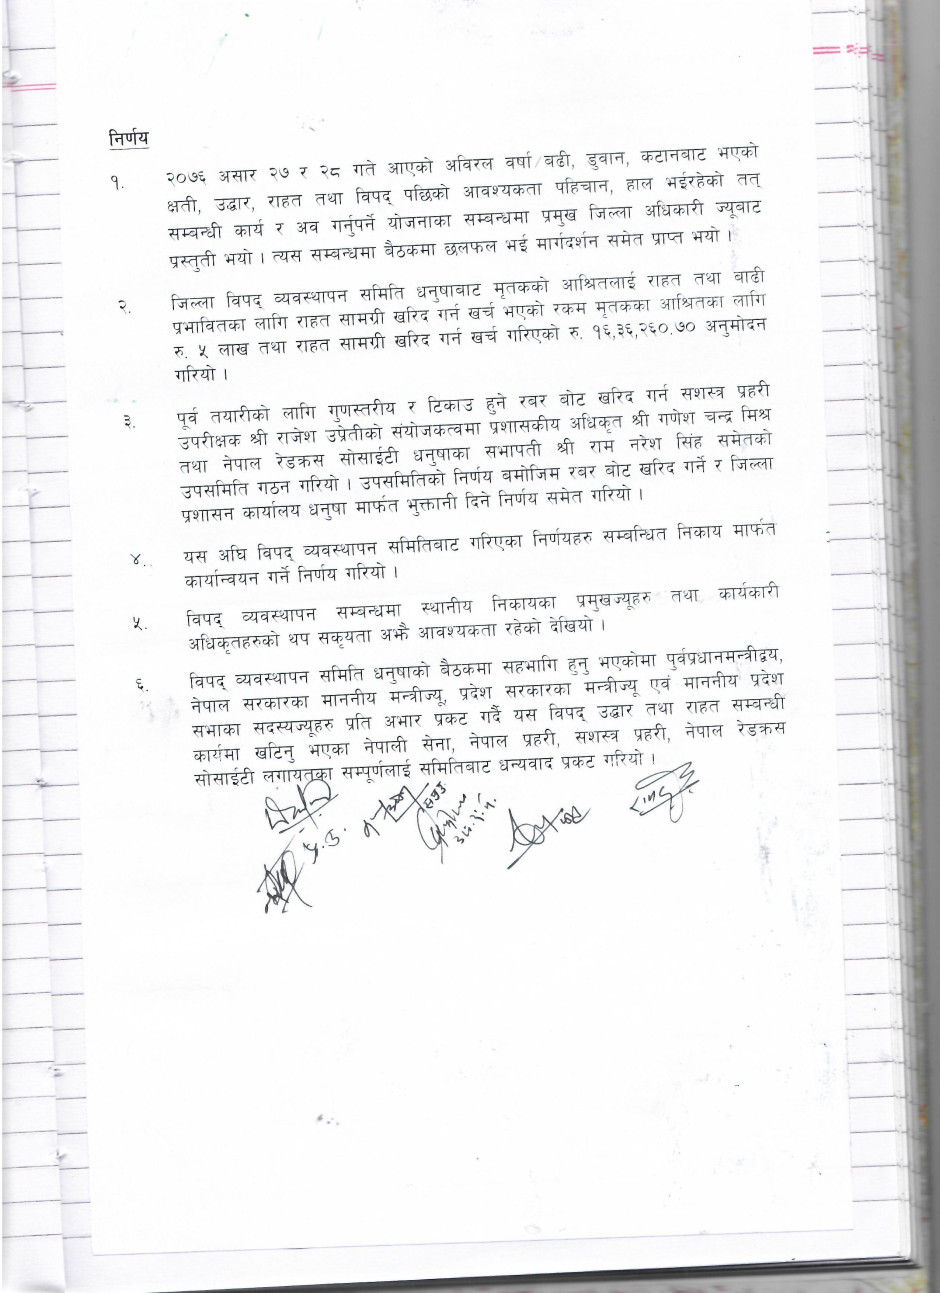 निर्णय
१. २०७६ असार २७ र २८ गते आएको अविरल वर्षा/बढी, डुवान, कटानबाट भएको
क्षती, उद्धार, राहत तथा विपद् पछिको आवश्यकता पहिचान, हाल भईरहेको तत्
सम्बन्धी कार्य र अव गर्नुपर्ने योजनाका सम्बन्धमा प्रमुख जिल्ला अधिकारी ज्यूबाट
प्रस्तुती भयो । त्यस सम्बन्धमा बैठकमा छलफल भई मार्गदर्शन समेत प्राप्त भयो ।
२. जिल्ला विपद् व्यवस्थापन समिति धनुषाबाट मृतकको आश्रितलाई राहत तथा बाढी
प्रभावितका लागि राहत सामग्री खरिद गर्न खर्च भएको रकम मृतकका आश्रितका लागि
रु. ५ लाख तथा राहत सामग्री खरिद गर्न खर्च गरिएको रु. १६,३६,२६०.७० अनुमोदन
गरियो ।
३. पूर्व तयारीको लागि गुणस्तरीय र टिकाउ हुने रबर बोट खरिद गर्न सशस्त्र प्रहरी
उपरीक्षक श्री राजेश उप्रेतीको संयोजकत्वमा प्रशासकीय अधिकृत श्री गणेश चन्द्र मिश्र
तथा नेपाल रेडक्रस सोसाईटी धनुषाका सभापती श्री राम नरेश सिंह समेतको
उपसमिति गठन गरियो । उपसमितिको निर्णय बमोजिम रबर बोट खरिद गर्ने र जिल्ला
प्रशासन कार्यालय धनुषा मार्फत भुक्तानी दिने निर्णय समेत गरियो ।
४. यस अघि विपद् व्यवस्थापन समितिबाट गरिएका निर्णयहरु सम्बन्धित निकाय मार्फत
कार्यान्वयन गर्ने निर्णय गरियो ।
५. विपद् व्यवस्थापन सम्बन्धमा स्थानीय निकायका प्रमुखज्यूहरु तथा कार्यकारी
अधिकृतहरुको थप सकृयता अझै आवश्यकता रहेको देखियो ।
६. विपद् व्यवस्थापन समिति धनुषाको बैठकमा सहभागि हुनु भएकोमा पुर्वप्रधानमन्त्रीद्वय,
नेपाल सरकारका माननीय मन्त्रीज्यू, प्रदेश सरकारका मन्त्रीज्यू एवं माननीय प्रदेश
सभाका सदस्यज्यूहरु प्रति अभार प्रकट गर्दै यस विपद् उद्धार तथा राहत सम्बन्धी
कार्यमा खटिनु भएका नेपाली सेना, नेपाल प्रहरी, सशस्त्र प्रहरी, नेपाल रेडक्रस
सोसाईटी लगायतका सम्पूर्णलाई समितिबाट धन्यवाद प्रकट गरियो ।